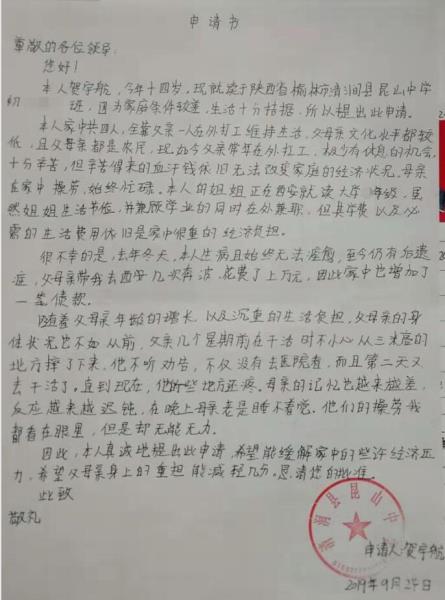 申请书
尊敬的各位领导:
您好!
本人贺宇航,今年十四岁,现就读于陕西省榆林市清涧县昆山中学
初 班,因为家庭条件较差,生活十分拮据,所以提出此申请。
本人家中共四人,全靠父亲一人在外打工维持生活,父母亲文化水平都较
低,且父母亲都是农民,现如今父亲常年在外打工,极少有休息的机会,
十分辛苦,但辛苦得来的血汗钱依旧无法改变家庭的经济状况,母亲
在家中操劳,始终忙碌。本人的姐姐正在西安就读大学 年级,虽
然姐姐生活节俭,并兼顾学业的同时在外兼职,但其学费以及必
需的生活费用依旧是家中很重的经济负担。
很不幸的是,去年冬天,本人生病且始终无法痊愈,至今仍有后遗
症,父母亲带我去西安几次奔波,花费了上万元,因此家中也增加了
一些债款。
随着父母亲年龄的增长,以及沉重的生活负担,父母亲的身
体状况也不如从前,父亲几个星期前在干活时不小心从三米高的
地方摔了下来,他不听劝告,不仅没有去医院看,而且第二天又
去干活了。直到现在,他的些地方还疼。母亲的记忆也越来越差,
反应越来越迟钝,在晚上母亲老是睡不着觉。他们的操劳我
都看在眼里,但是却无能无力。
因此,本人真诚地提出此申请,希望能缓解家中的些许经济压
力,希望父母亲身上的重担能减轻几分。恳请您的批准。
此致
敬礼
清涧县昆山中
申请人:贺宇航
2019年9月24日